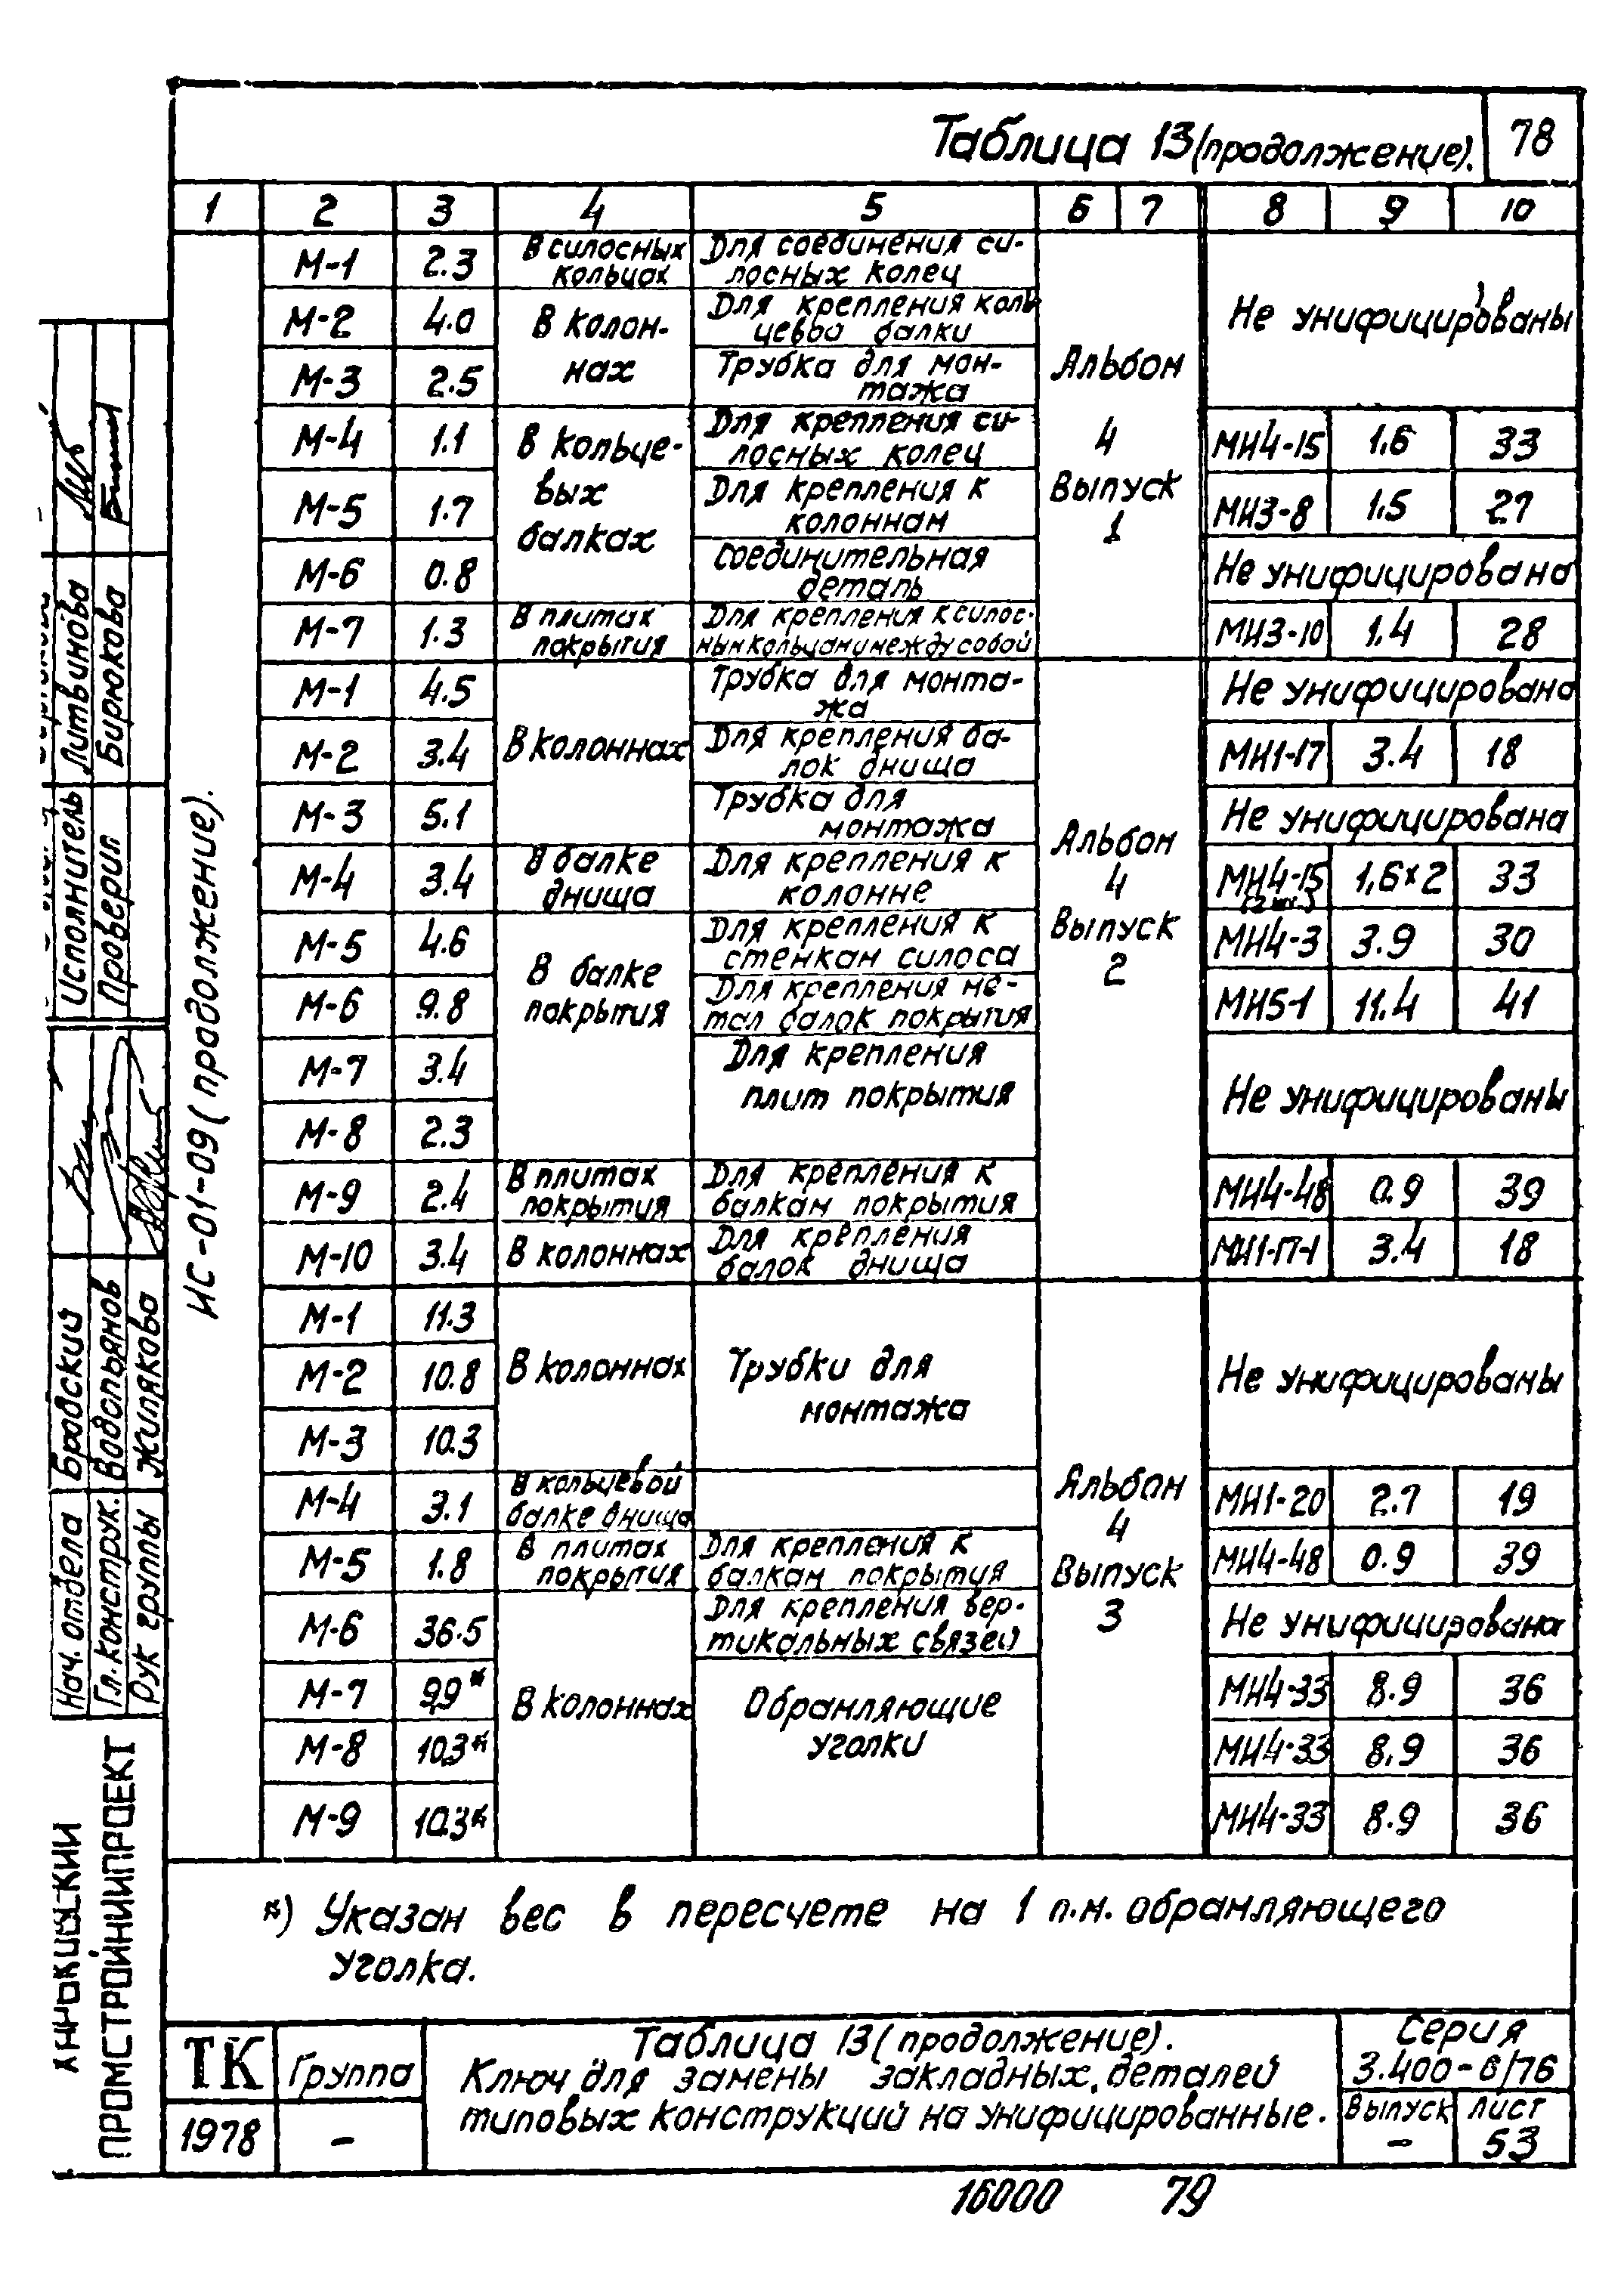 Таблица 13 (продолжение). 78
1 2 3 4 5 6 7 8 9 10
ИС-01-09 (продолжение).
М-1 2.3 В силосных кольцах Для соединения силосных колец Альбом 4 Выпуск 1 Не унифицированы
М-2 4.0 В колоннах Для крепления кольцевой балки
М-3 2.5 Трубка для монтажа
М-4 1.1 В кольцевых балках Для крепления силосных колец МН4-15 1,6 33
М-5 1.7 Для крепления к колоннам МН3-8 1,5 27
М-6 0.8 Соединительная деталь Не унифицирована
М-7 1.3 В плитах покрытия Для крепления к силосным кольцам и между собой МН3-10 1,4 28
М-1 4.5 В колоннах Трубка для монтажа Альбом 4 Выпуск 2 Не унифицирована
М-2 3.4 Для крепления балок днища МН1-17 3.4 18
М-3 5.1 Трубка для монтажа Не унифицирована
М-4 3.4 В балке днища Для крепления к колонне МН4-15 (2 шт.) 1,6×2 33
М-5 4.6 В балке покрытия Для крепления к стенкам силоса МН4-3 3.9 30
М-6 9.8 Для крепления метал балок покрытия МН5-1 11.4 41
М-7 3.4 Для крепления плит покрытия Не унифицированы
М-8 2.3
М-9 2.4 В плитах покрытия Для крепления к балкам покрытия МН4-48 0.9 39
М-10 3.4 В колоннах Для крепления балок днища МН1-17-1 3.4 18
М-1 11.3 В колоннах Трубки для монтажа Альбом 4 Выпуск 3 Не унифицированы
М-2 10.8
М-3 10.3
М-4 3.1 В кольцевой балке днища МН1-20 2.7 19
М-5 1.8 В плитах покрытия Для крепления к балкам покрытия МН4-48 0.9 39
М-6 36.5 В колоннах Для крепления вертикальных связей Не унифицирована
М-7 9,9* Обрамляющие уголки МН4-33 8.9 36
М-8 10,3* МН4-33 8,9 36
М-9 10.3* МН4-33 8.9 36
*) Указан вес в пересчете на 1 п.м. обрамляющего
уголка.
ТК Группа
1978 –
Таблица 13 (продолжение).
Ключ для замены закладных деталей
типовых конструкций на унифицированные.
Серия
3.400-6/76
Выпуск Лист
– 53
16000 79
Исполнитель Литвинова
Проверил Бирюкова
Нач. отдела Бродский
Гл. конструк. Водопьянов
Рук группы Жилякова
ПРОМСТРОЙНИИПРОЕКТ